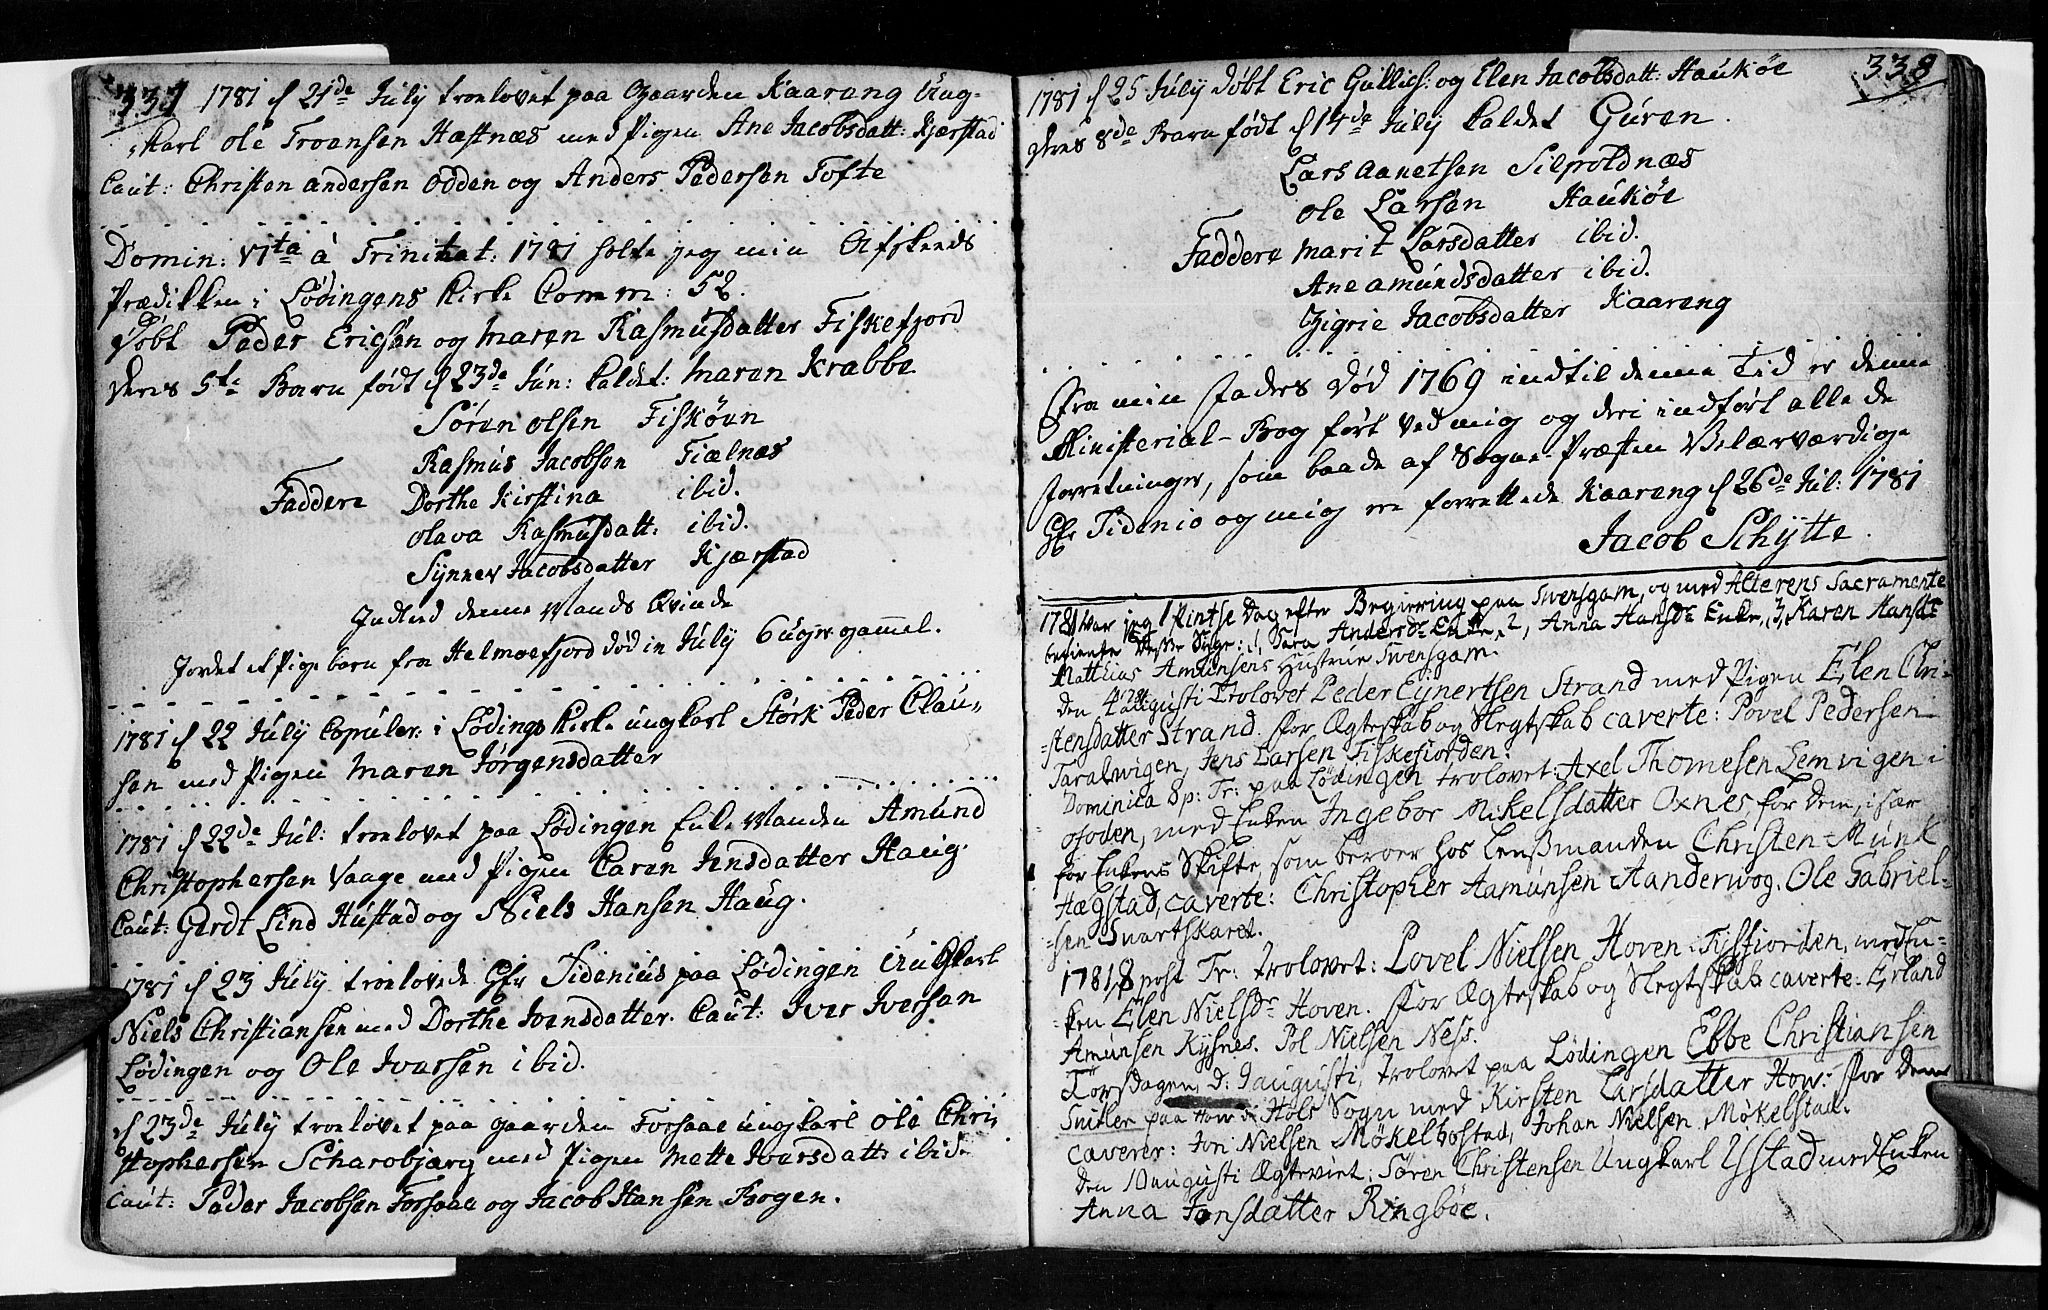 337
1781 d 21de July troelovet paa Gaarden Kaarang Ung-
karl Ole Troensen Hæstnæs med Pigen Ane Jacobsdatt: Kjærstad
Caut: Christen andersen Odden og Anders Pedersen Tofte
Domin: VIta à Trinitat: 1781 holte jeg min Afskeeds
Prædikken i Lødingens Kirke Comm: 52.
Døbt Peder Ericsen og Maren Rasmusdatter Fiskefjord
deres 5te Barn født d 23de Jun: kaldet: Maren Krabbe
Søren Olsen Fiskøen
Rasmus Jacobsen Fiælnæs
Faddere Dorthe Kirstina ibid.
Olava Rasmusdatt: ibid.
Synnev Jacobsdatter Kjærstad
Indled denne Mands Qvinde
Jordet et Pige barn fra Helmoefjord død in July 6 uger gammel.
1781 d 22 July Copuler: i Lødings Kirke ungkarl Størk Peder Clau-
sen med Pigen Maren Jørgensdatter
1781 d 22de Jul: troelovet paa Lødingen Enke Manden Amund
Christophersen Vaage med Pigen Caren Jensdatter Haug.
Caut: Gerdt Lind Hustad og Niels Hansen Haug.
1781 d 23 July troelovede Hr Tidenius paa Lødingen Ungkarl
Niels Christiansen med Dorthe Ivensdatter. Caut: Iver Iversen
Lødingen og Ole Ivarsen ibid.
d 23de July troelovet paa gaarden Forsaae ungkarl Ole Chri-
stophersen Scharobjærg med Pigen Mette Ivarsdatt: ibid.
Caut: Peder Jacobsen Forsaae og Jacob Hansen Bogen.
338
1781 d 25 July døbt Eric Gullics: og Elen Jacobsdatt: Haukøe
deres 8de Barn født d 14de July kaldet Guren.
Lars Aanetsen Silpoldnæs
Ole Larsen Haukøe
Faddere Marit Larsdatter ibid.
Ane amundsdatter ibid.
Zigrie Jacobsdatter Kaarang
Fra min Faders Død 1769 indtil denne Tid er denne
Ministerial-Bog ført ved mig og deri indført alle de
Forretninger, som baade af Sogne-Præsten Velærværdige
Hr Tidenio og mig ere forrettede Kaarang d 26de Jul: 1781
Jacob Schytte.
1781 War jeg 1 Pintse Dag efter Begiering paa Svensgam, og med Alterens Sacramente
betiente Syge: 1, Sara Andersdr Enke, 2, Anna Hansdr Enke, 3, Karen Hansdr
Matthias Amunsens Hustrue Svensgam.
den 4 augusti Trolovet Peder Eynertsen Strand med Pigen Elen Chri-
-stensdatter Strand. for Ægteskab og Slegtskab caverte: Povel Pedersen
Taralwigen, Jens Larsen Fiskefiorden.
Dominica 8 p: Tr: paa Lødingen trolovet: Axel Thomesen Lemvigen i
Ofoden, med Enken Ingebor Mikelsdatter Oxnes for dem, især
for Enkens Skifte, som beroer hos Lensmanden Christen Munk
Hægstad, caverte: Christopher Aamunsen Aanderwog. Ole Gabriel-
-sen Svartskaret.
1781, 8 post Tr: trolovet: Povel Nielsen Hoven i Tysfiorden, med En-
-ken Elen Nielsdr Hoven. For Ægteskab og Slegtskab caverte. Erland
Amunsen Kysnes. Pol Nielsen Ness.
Torsdagen, d: 9 augusti, trolovet paa Lødingen Ebbe Christiansen
Snitler paa Hols Sogn med Kirsten Larsdatter How: for dem
caverer: Jon Nielsen Møkelbostad, Johan Nielsen Møkelstad.
den 10 augusti Ægtevirt: Søren Christensen Ungkarl Ystad med Enken
Anna Jonsdatter Ringbøe.